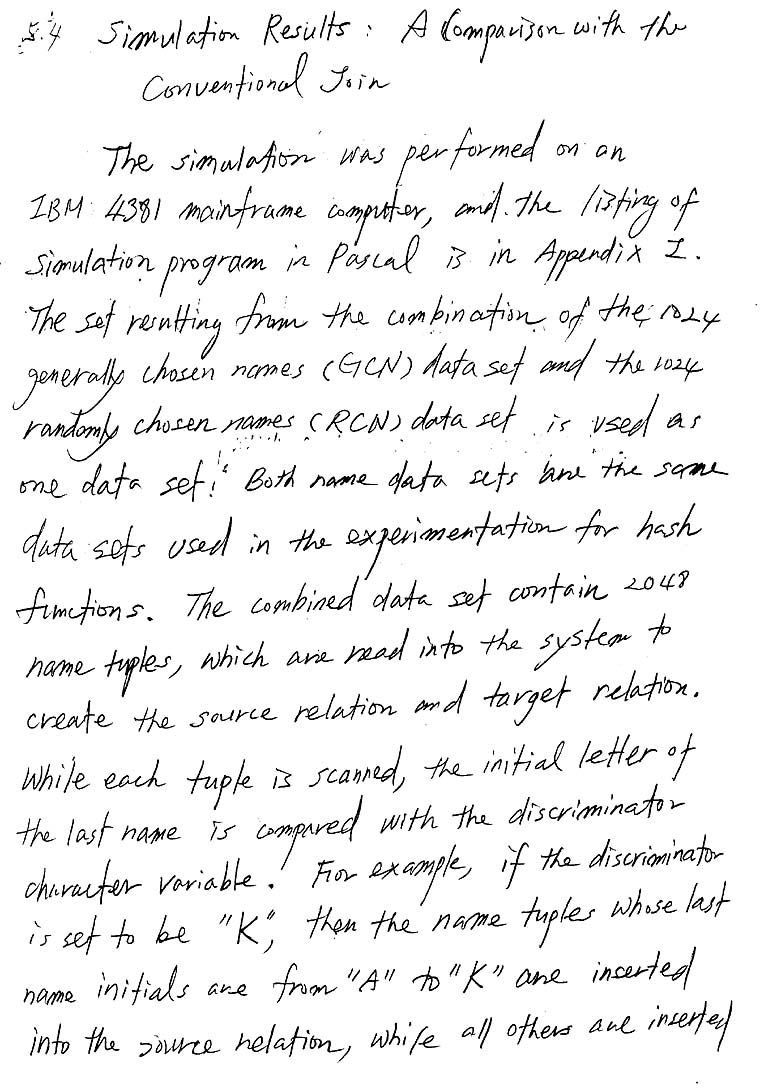 5.4 Simulation Results : A Comparison with the
Conventional Join
The simulation was performed on an
IBM 4381 mainframe computer, and the listing of
Simulation program in Pascal is in Appendix I.
The set resulting from the combination of the 1024
generally chosen names (GCN) data set and the 1024
randomly chosen names (RCN) data set is used as
one data set. Both name data sets are the same
data sets used in the experimentation for hash
functions. The combined data set contain 2048
name tuples, which are read into the system to
create the source relation and target relation.
While each tuple is scanned, the initial letter of
the last name is compared with the discriminator
character variable. For example, if the discriminator
is set to be "K", then the name tuples whose last
name initials are from "A" to "K" are inserted
into the source relation, while all others are inserted